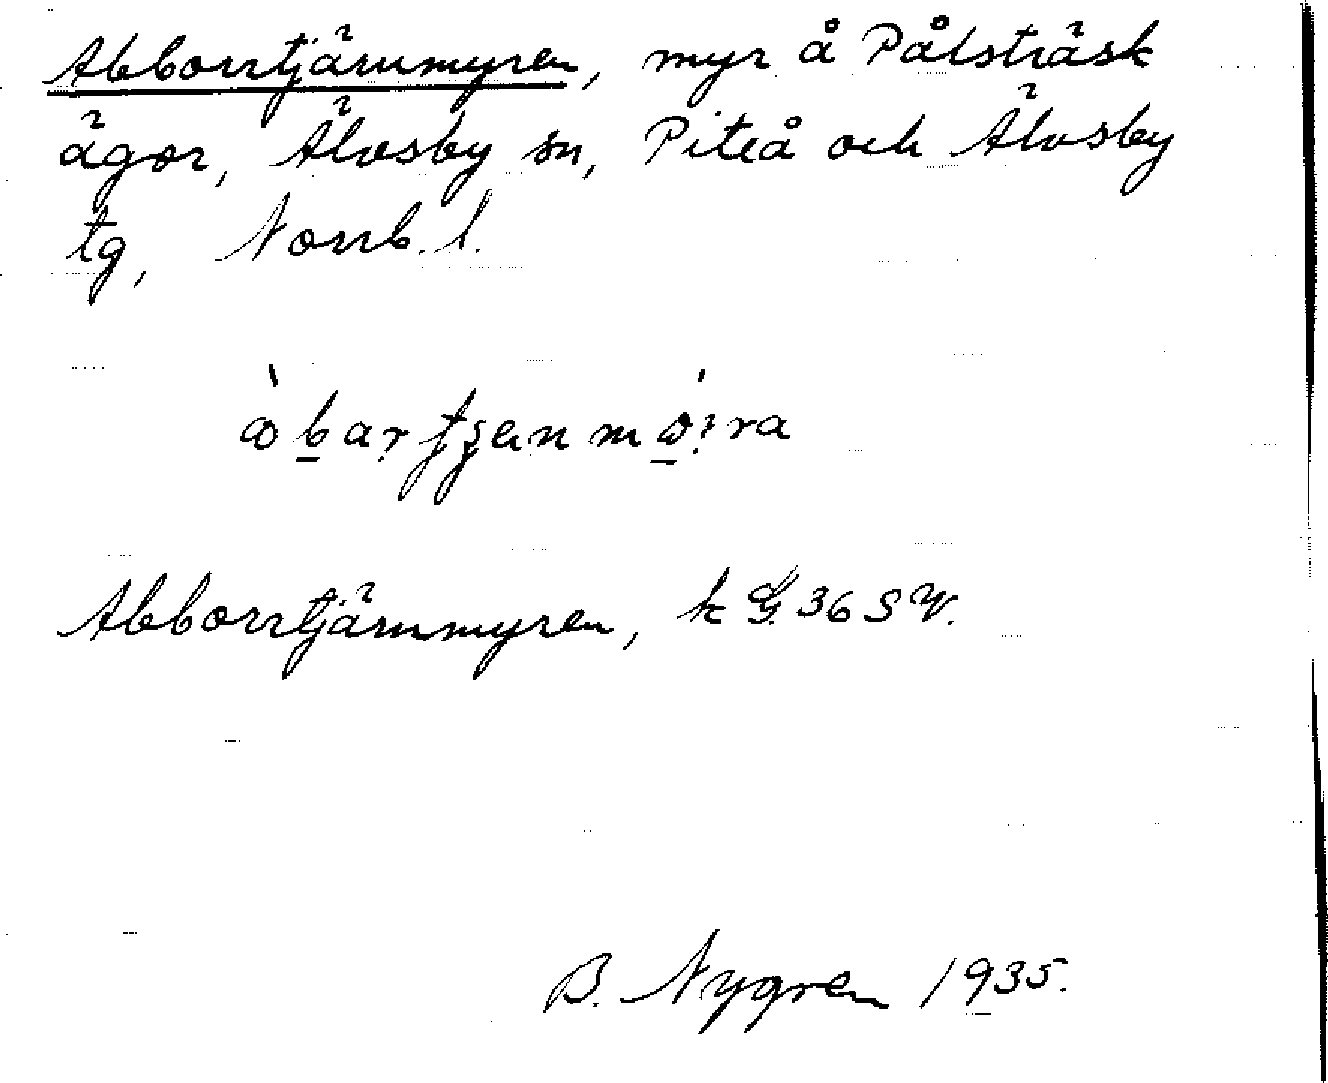 Abborrtjärnmyren, myr å Pålsträsk
ägor, Älvsby sn, Piteå och Älvsby
tg, Norrb. l.
Abborrtjärnmyren, k G 36 SV.
B. Nygren 1935.